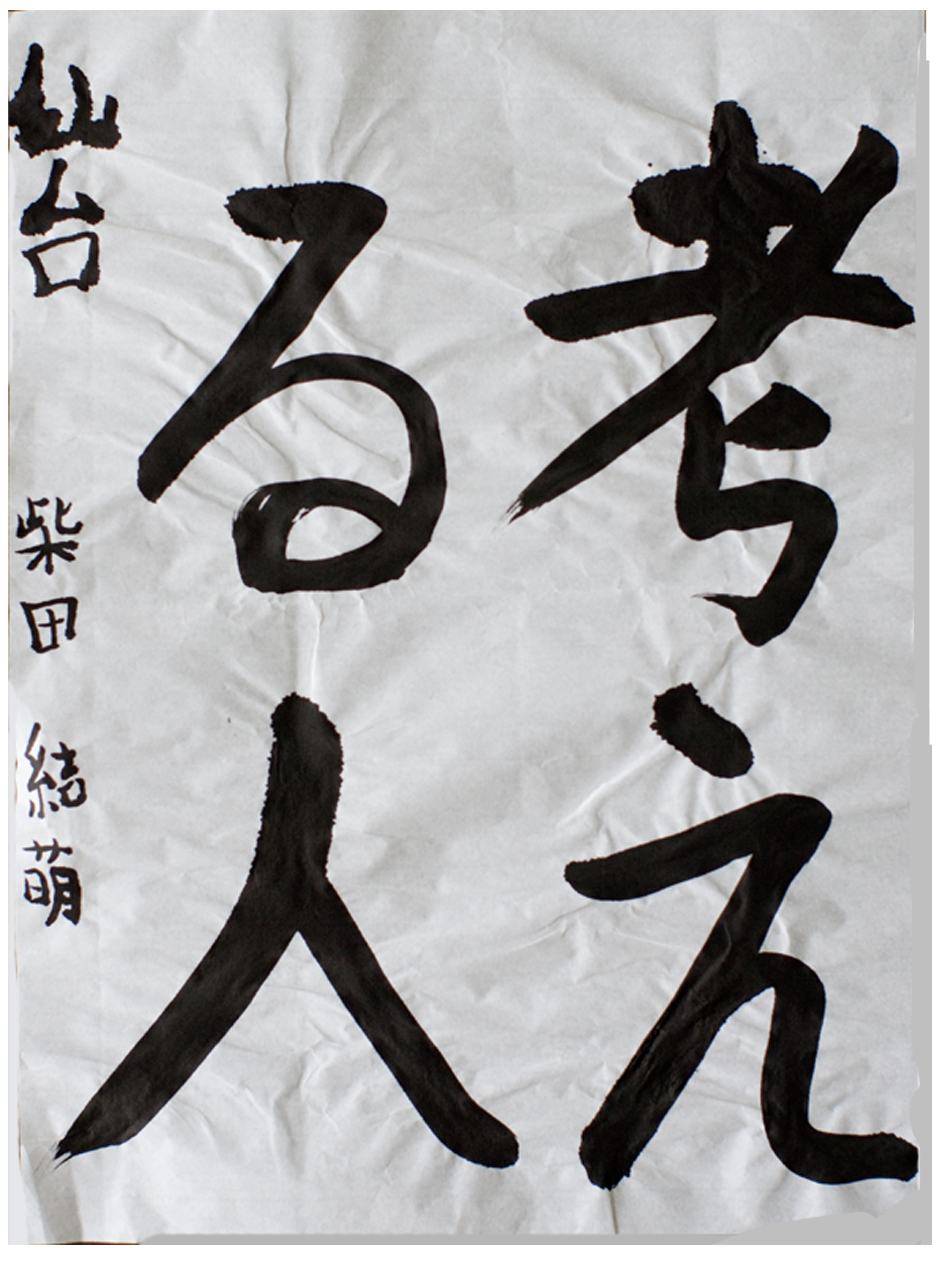 考え
る人
仙台 柴田 結萌